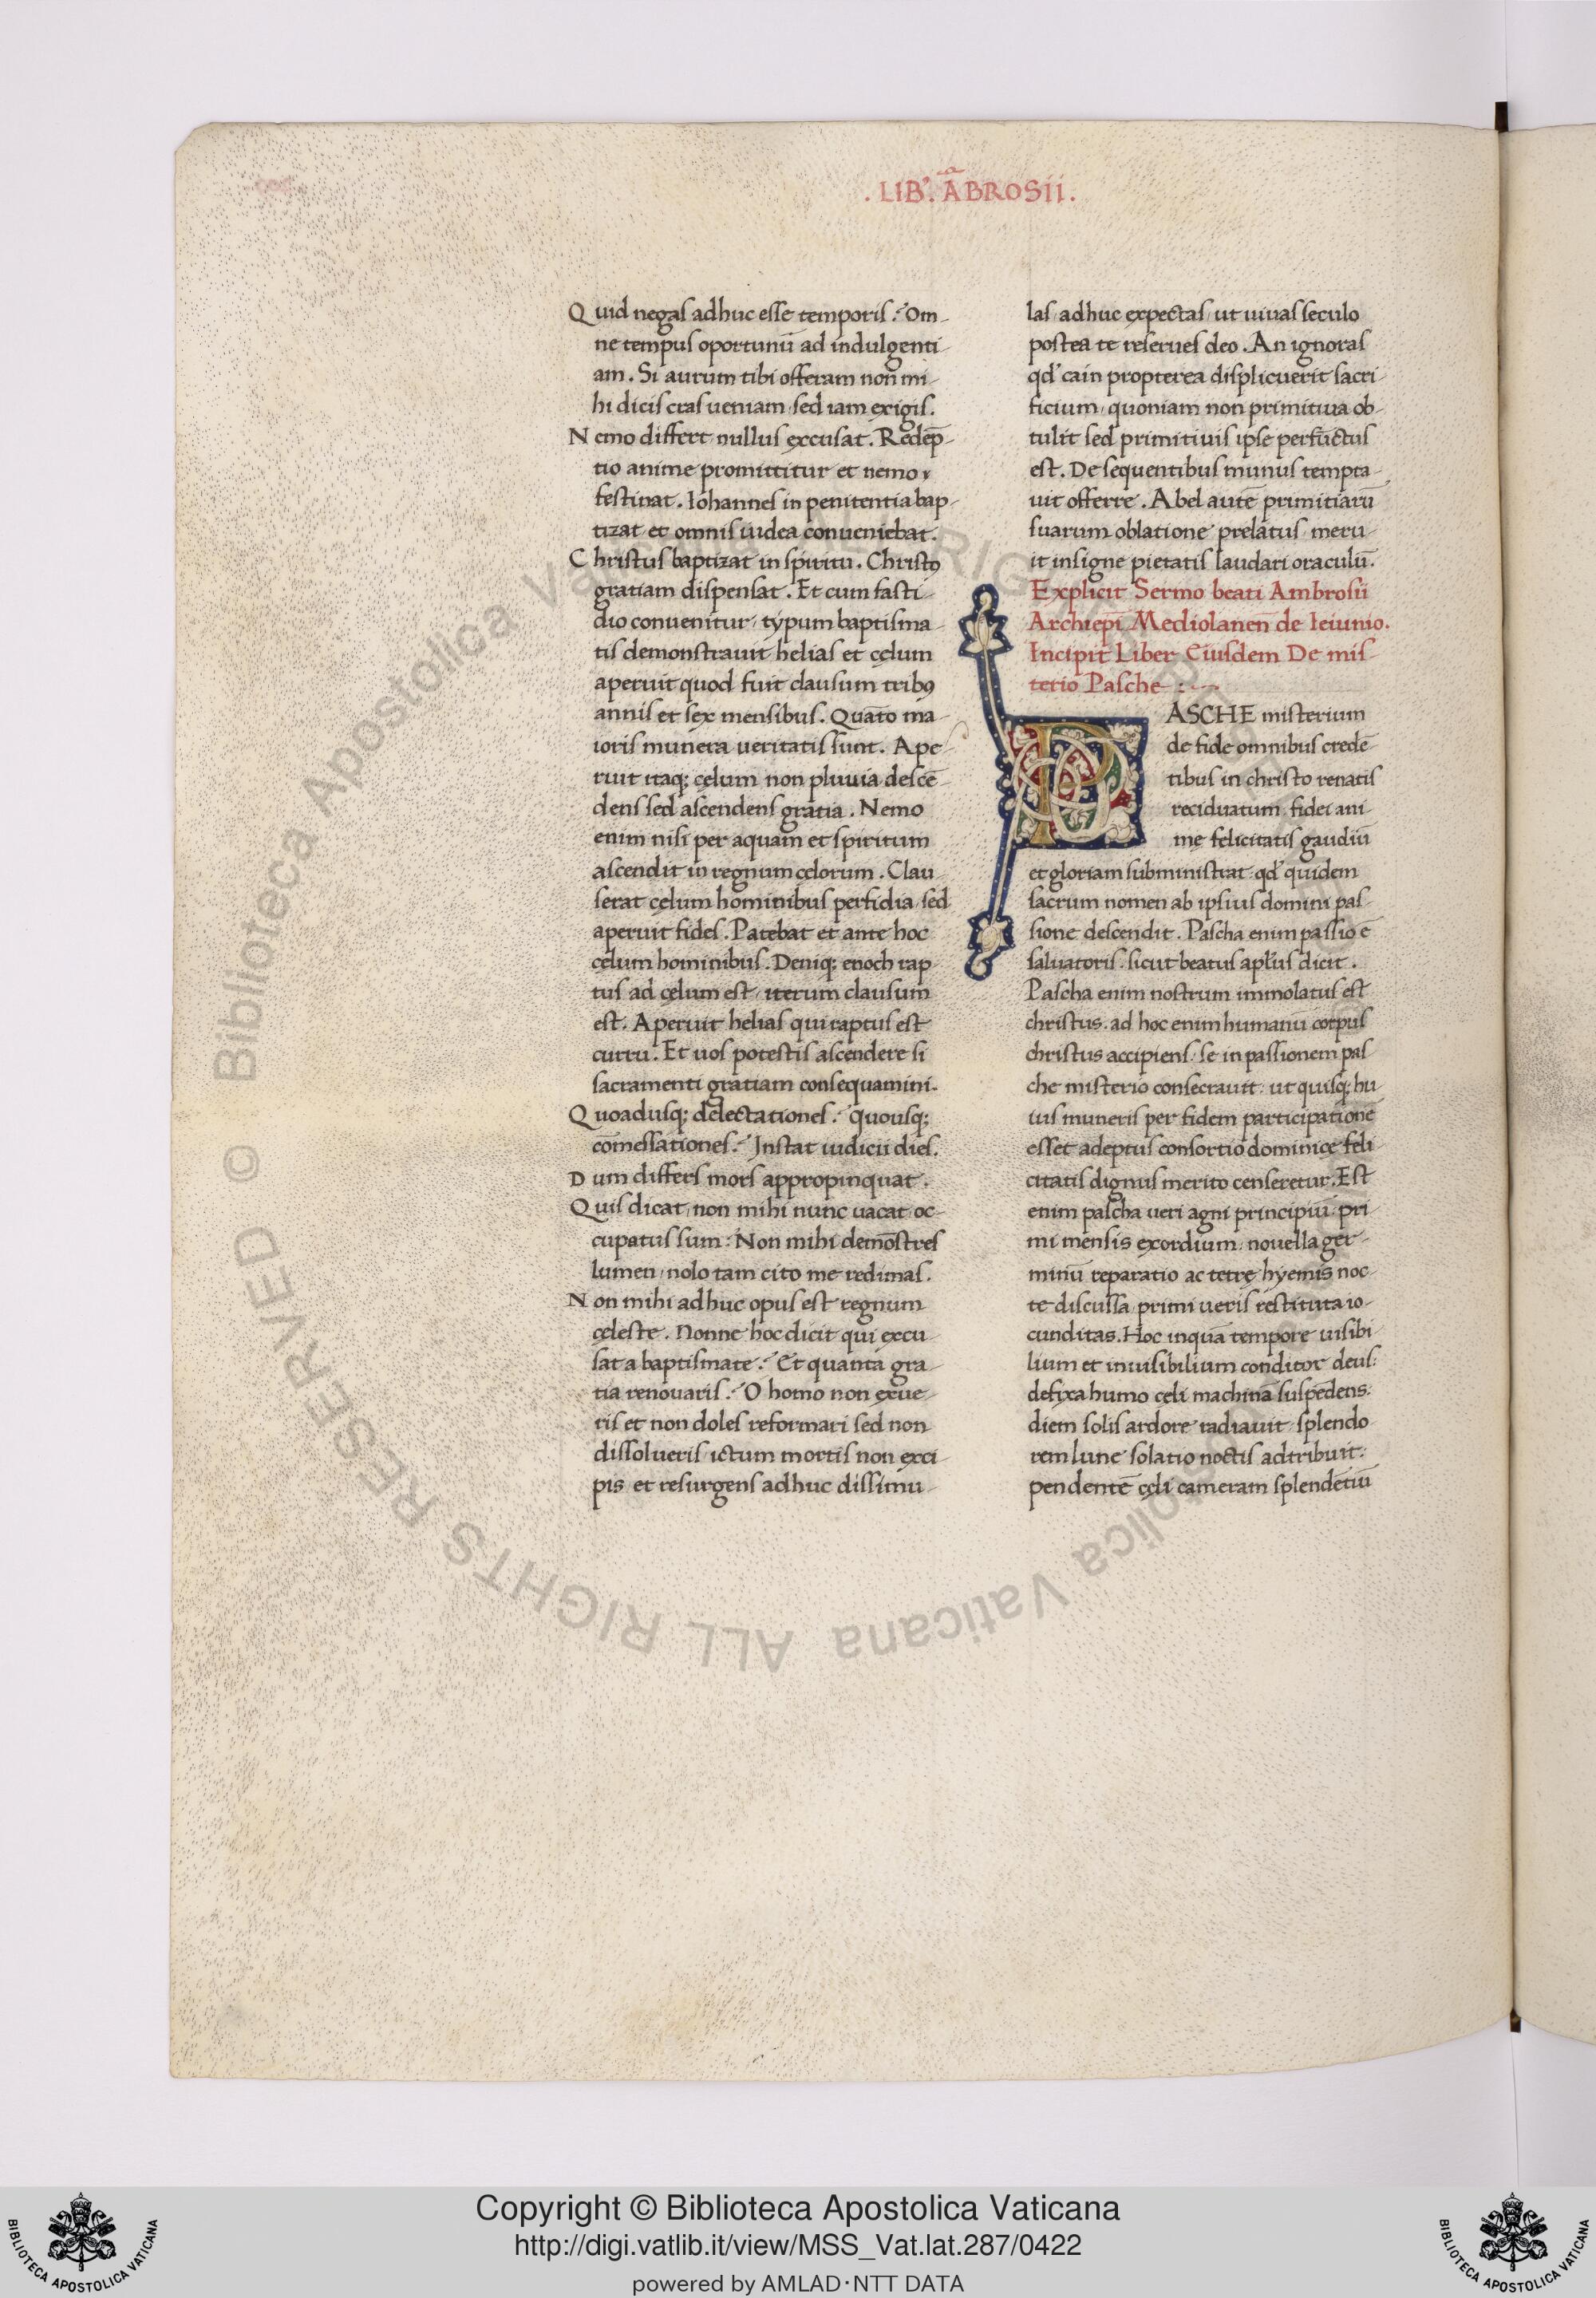 . LIB'. ÃBROSII .
Quid negas adhuc esse temporis? Om-
ne tempus oportunū ad indulgenti-
am. Si aurum tibi offeram non mi-
hi dicis cras ueniam, sed iam exigis.
Nemo differt nullus excusat. Redēp-
tio anime promittitur et nemo
festinat. Iohannes in penitentia bap-
tizat et omnis iudea conueniebat.
Christus baptizat in spiritu. Christꝰ
gratiam dispensat. Et cum fasti-
dio conuenitur, typum baptisma-
tis demonstrauit helias et cęlum
aperuit quod fuit clausum tribꝰ
annis et sex mensibus. Quāto ma-
ioris munera ueritatis sunt. Ape-
ruit itaq; cęlum non pluuia descē-
dens sed ascendens gratia. Nemo
enim nisi per aquam et spiritum
ascendit in regnum cęlorum. Clau-
serat cęlum hominibus perfidia, sed
aperuit fides. Patebat et ante hoc
cęlum hominibus. Deniq; enoch rap
tus ad cęlum est, iterum clausum
est. Aperuit helias qui raptus est
curru. Et uos potestis ascendere si
sacramenti gratiam consequamini.
Quoadusq; delectationes? quousq;
cōmessationes? Instat iudicii dies.
Dum differs mors appropinquat.
Quis dicat, non mihi nunc uacat oc-
cupatus sum: Non mihi demōstres
lumen, nolo tam cito me redimas.
Non mihi adhuc opus est regnum
cęleste. Nonne hoc dicit qui excu-
sat a baptismate? Et quanta gra-
tia renouaris? O homo non exue-
ris et non doles reformari sed non
dissolueris, ictum mortis non exci-
pis et resurgens adhuc dissimu-
las, adhuc expectas, ut uiuas seculo
postea te reserues deo. An ignoras
qd' cain propterea displicuerit sacri-
ficium, quoniam non primitiua ob-
tulit sed primitiuis ipse perfūctus
est. De sequentibus munus tempta-
uit offerre. Abel autē primitiarū
suarum oblatione prelatus meru-
it insigne pietatis laudari oraculū.
Explicit Sermo beati Ambrosii
Archiepī Mediolanen̄ de Ieiunio.
Incipit Liber Eiusdem De mis-
terio Pasche :~
PASCHE misterium
de fide omnibus credē-
tibus in christo renatis
reciduatum fidei ani
me felicitatis gaudiū
et gloriam subministrat, qd' quidem
sacrum nomen ab ipsius domini pas-
sione descendit. Pascha enim passio ē
saluatoris, sicut beatus apl'us dicit.
Pascha enim nostrum immolatus est
christus. ad hoc enim humanū corpus
christus accipiens, se in passionem pas-
che misterio consecrauit: ut quisq; hu-
ius muneris per fidem participationē
esset adeptus consortio dominicę feli
citatis dignus merito censeretur. Est
enim pascha ueri agni principiū, pri-
mi mensis exordium, nouella ger-
minū reparatio ac tetrę hyemis noc-
te discussa, primi ueris restituta io-
cunditas. Hoc inquā tempore uisibi-
lium et inuisibilium conditor deus:
defixa humo cęli machinā suspēdens:
diem solis ardore radiauit, splendo-
rem lune solatio noctis adtribuit:
pendentē cęli cameram splendētiū
Copyright © Biblioteca Apostolica Vaticana
http://digi.vatlib.it/view/MSS_Vat.lat.287/0422
powered by AMLAD·NTT DATA
BIBLIOTECA APOSTOLICA VATICANA
BIBLIOTECA APOSTOLICA VATICANA
© Biblioteca Apostolica Vaticana ALL RIGHTS RESERVED